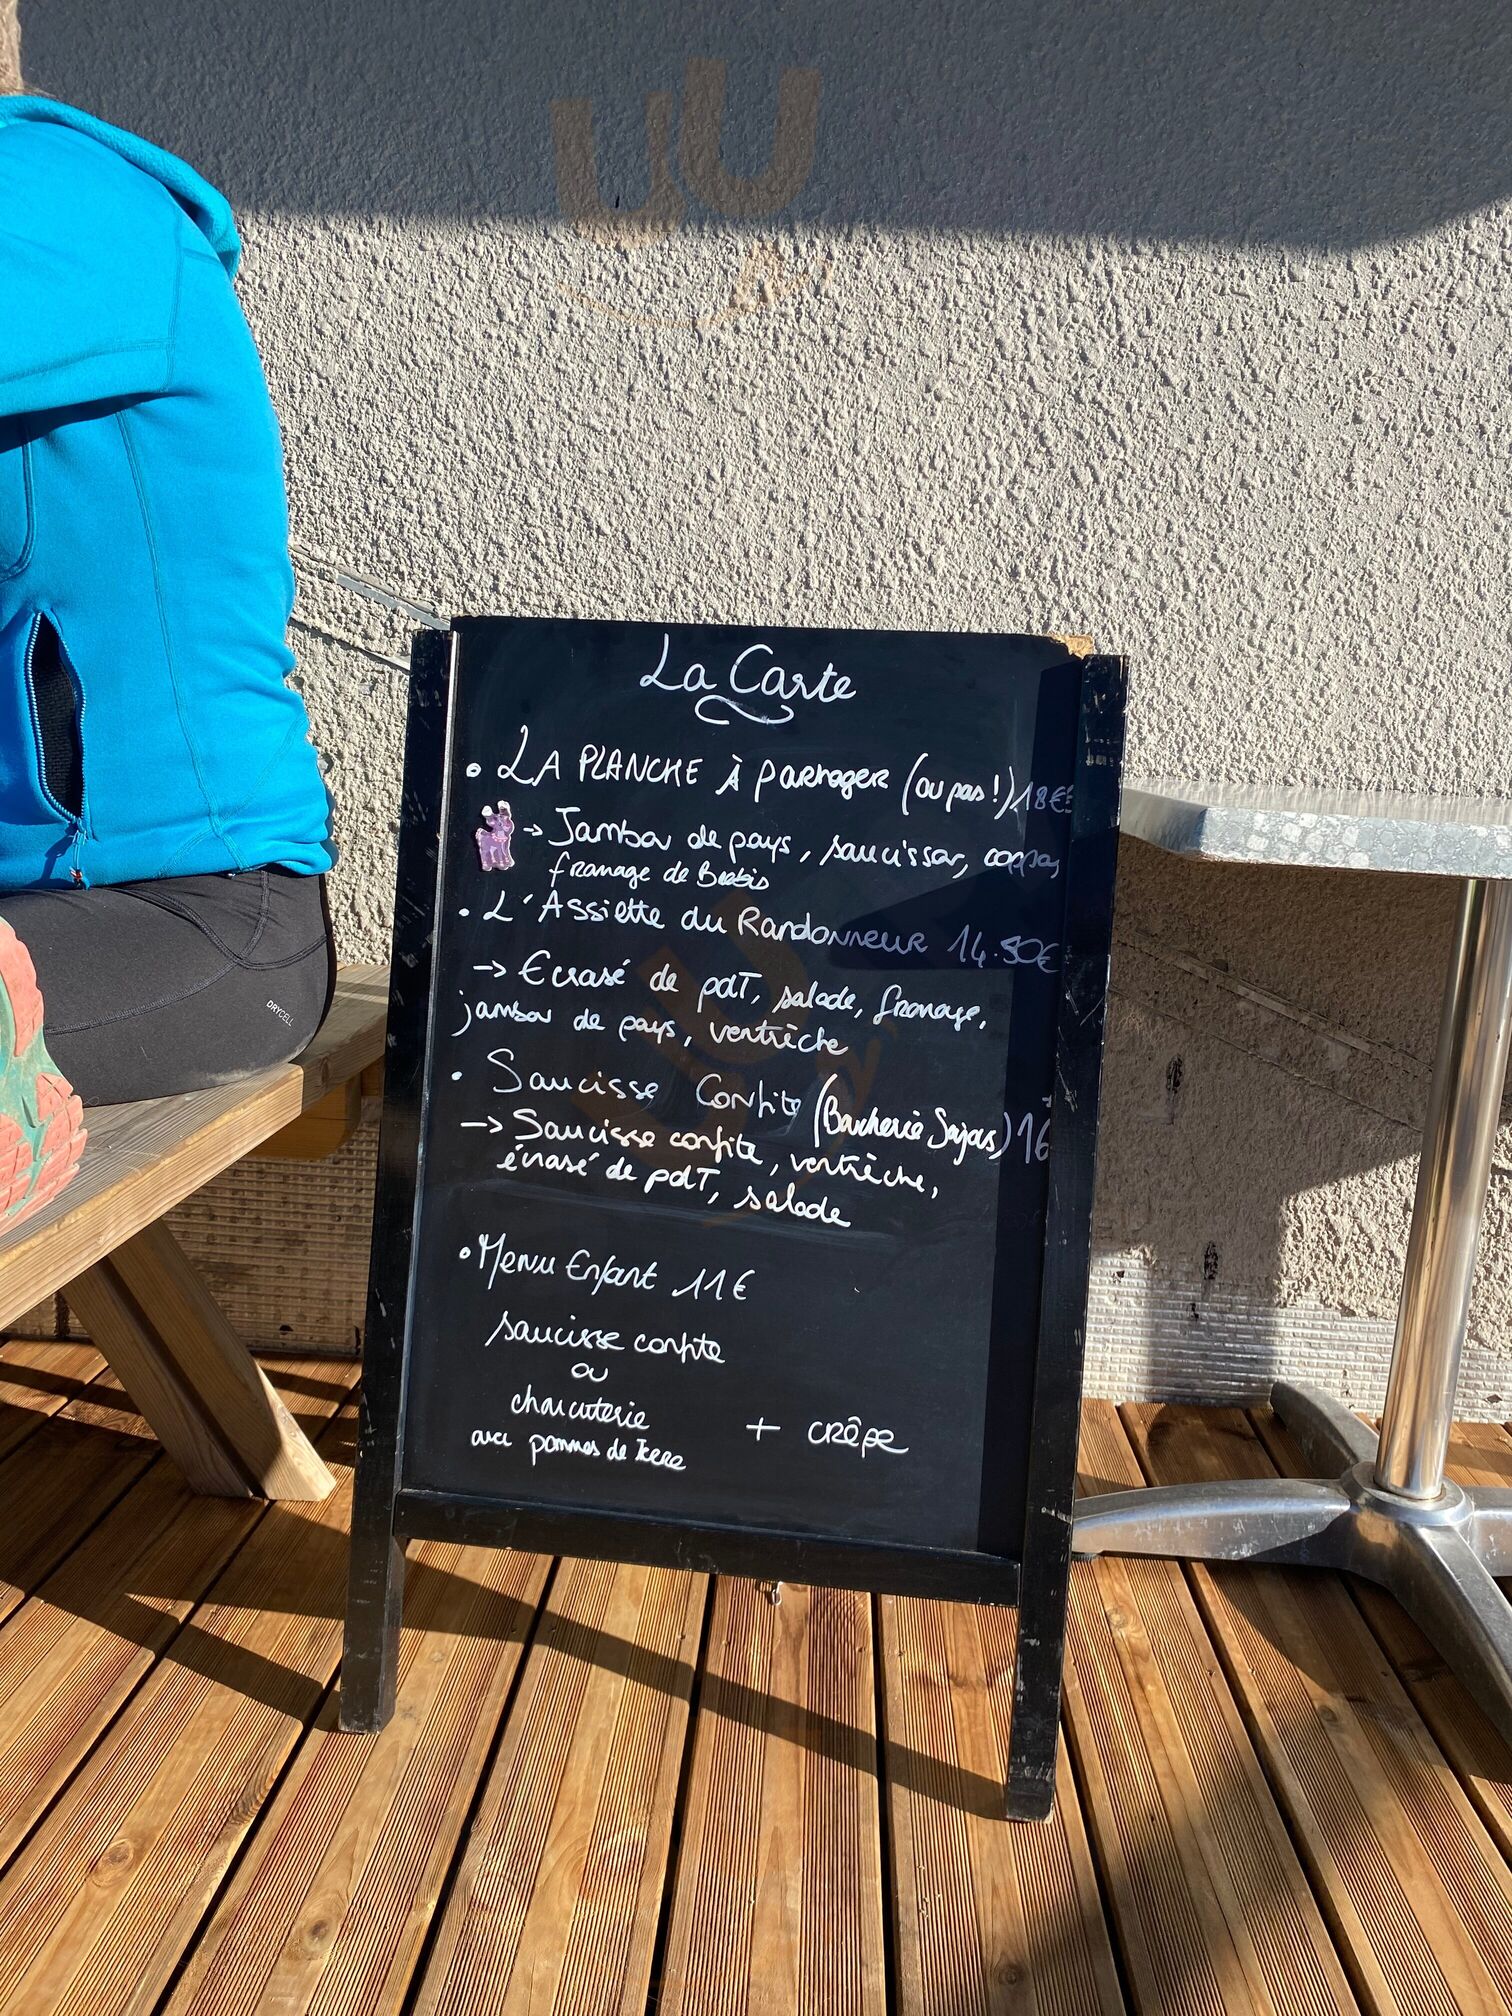 La Carte
• LA PLANCHE À PARTAGER (ou pas !) 18€
→ Jambon de pays, saucisson, coppa,
fromage de Brebis
• L'Assiette du RANDONNEUR 14.50€
→ Écrasé de pdT, salade, fromage,
jambon de pays, ventrèche
• Saucisse Confite (Boucherie Sajous) 16
→ Saucisse confite, ventrèche,
écrasé de pdT, salade
• Menu Enfant 11€
saucisse confite
ou
charcuterie
avec pommes de Terre + CRÊPE
DRYCELL